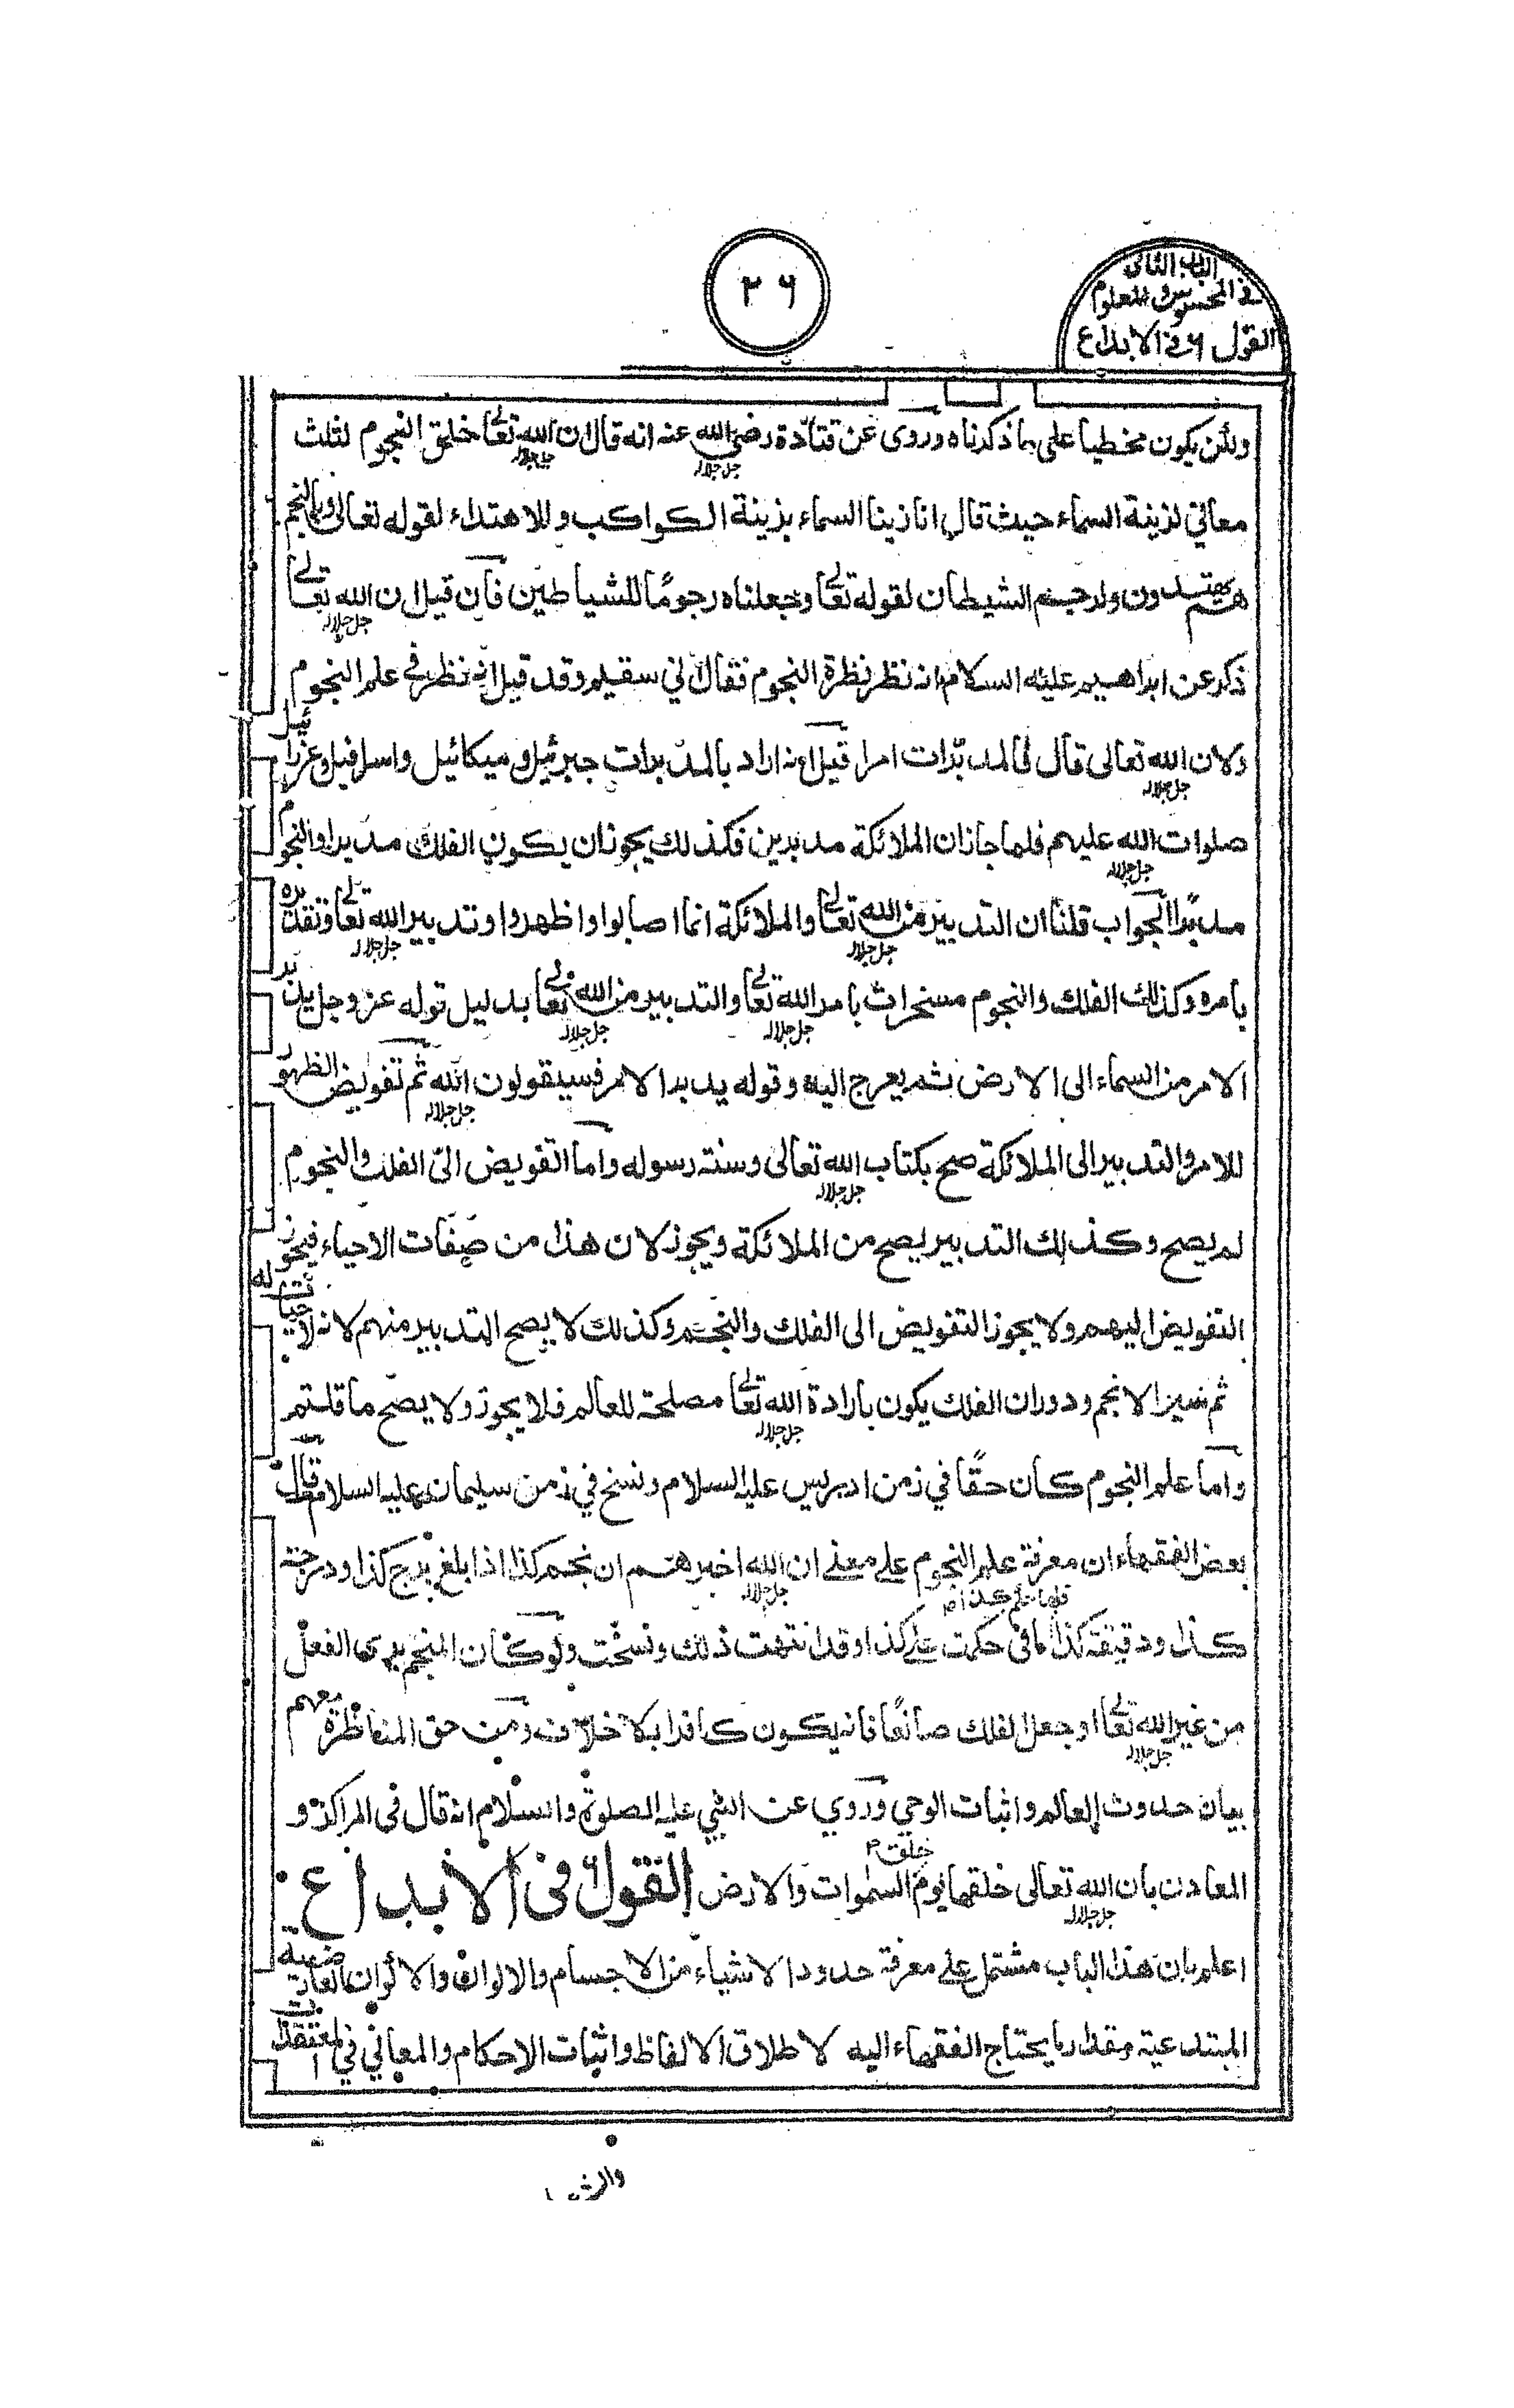 ٢٦
الباب الثاني
في المحسوس والمعلوم
القول ٦ في الابداع
ولئن يكون مخطيا على ما ذكرناه وروى عن قتادة رضى الله عنه انه قال ان الله تعالى خلق النجوم لثلث
معاني لزينة السماء حيث قال انا زينا السماء بزينة الكواكب وللاهتداء لقوله تعالى وبالنجم
هم يهتدون ولرجم الشيطان لقوله تعالى وجعلناه رجومًا للشياطين فان قيل ان الله تعالى
ذكر عن ابراهيم عليه السلام انه نظر نظرة النجوم فقال اني سقيم وقد قيل انه نظر في علم النجوم
ولان الله تعالى قال فالمدبّرات امرا قيل انه اراد بالمدبرات جبرئيل وميكائيل واسرافيل وعزرائيل
صلوات الله عليهم فلما جاز ان الملائكة مدبرين فكذلك يجوز ان يكون الفلك مدبرا والنجوم
مدبرًا الجواب قلنا ان التدبير من الله تعالى والملائكة انما اصابوا واظهروا وتدبير الله تعالى وتقديره
بامره وكذلك الفلك والنجوم مسخرات بامر الله تعالى والتدبير من الله تعالى بدليل قوله عز وجل يدبر
الامر من السماء الى الارض ثم يعرج اليه وقوله يدبر الامر فسيقولون الله ثم تفويض الظهور
للامر والتدبير الى الملائكة صح بكتاب الله تعالى وسنته رسوله واما التفويض الى الفلك والنجوم
لم يصح وكذلك التدبير يصح من الملائكة ويجوز لان هذا من صفات الاحياء فيجوز
التفويض اليهم ولا يجوز التفويض الى الفلك والنجم وكذلك لا يصح التدبير منهم لانه لا حياة له
ثم سير الانجم ودوران الفلك يكون بارادة الله تعالى مصلحة للعالم فلا يجوز ولا يصح ما قلتم
واما علم النجوم كان حقًا في زمن ادريس عليه السلام ونسخ في زمن سليمان عليه السلام قال
بعض الفقهاء ان معرفة علم النجوم على معنى ان الله اخبرهم ان نجم كذا اذا بلغ برج كذا ودرجة
كذا ودقيقة كذا فاني حكمت على كذا وقد انتهت ذلك ونسخت ولو كان المنجم يرى الفعل
من غير الله تعالى او جعل الفلك صانعًا فانه يكون كافرا بلا خلاف ومن حق المناظرة معهم
بيان حدوث العالم واثبات الوحي وروي عن النبي عليه الصلوة والسلام انه قال في المراكز و
المعادن بان الله تعالى خلقهما يوم خلق السموات والارض القول ٦ في الابداع
اعلم بان هذا الباب مشتمل على معرفة حدود الاشياء من الاجسام والالوان والاكوان العارضية
المبتدعية ومقدار ما يحتاج الفقهاء اليه لاطلاق الالفاظ واثبات الاحكام والمعاني في المعتقدات